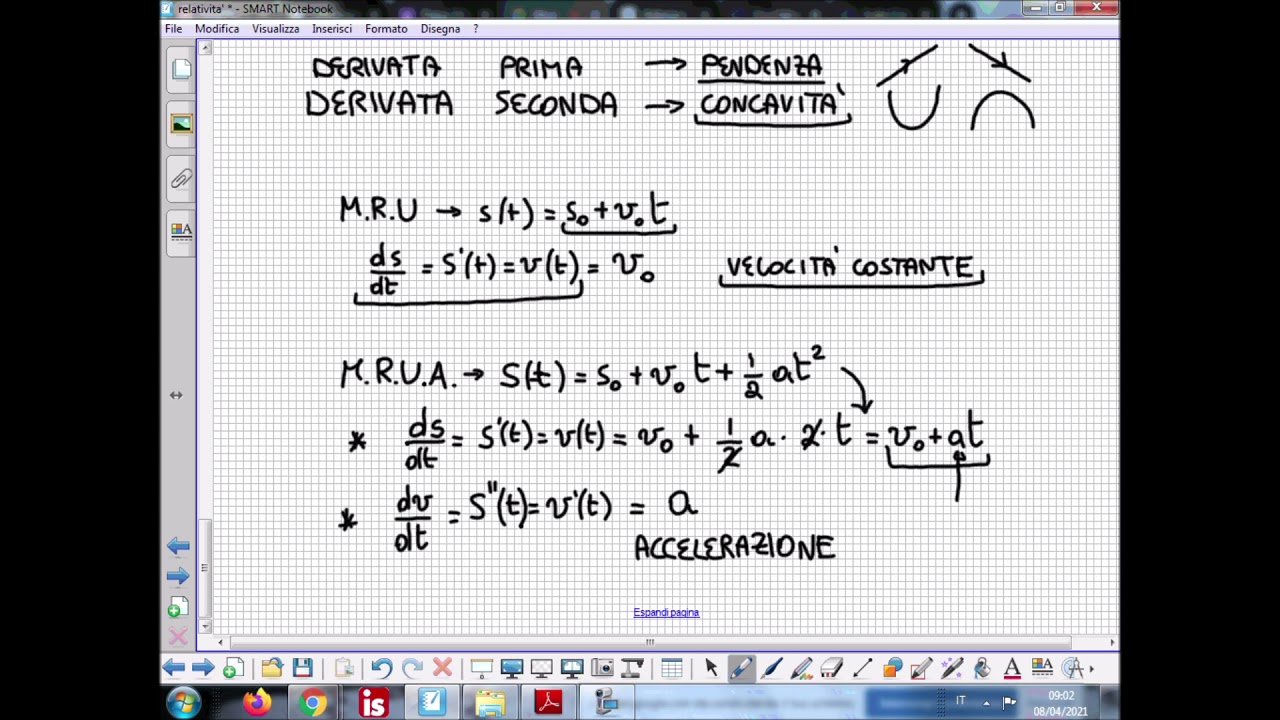 relativita' * - SMART Notebook
File Modifica Visualizza Inserisci Formato Disegna ?
DERIVATA PRIMA → PENDENZA
DERIVATA SECONDA → CONCAVITA'
M.R.U → s(t) = s₀ + v₀ t
ds/dt = s'(t) = v(t) = v₀ VELOCITA' COSTANTE
M.R.U.A. → s(t) = s₀ + v₀ t + 1/2 at²
* ds/dt = s'(t) = v(t) = v₀ + 1/2 a · 2 · t = v₀ + at
* dv/dt = s''(t) = v'(t) = a
ACCELERAZIONE
Espandi pagina
IT 09:02
08/04/2021